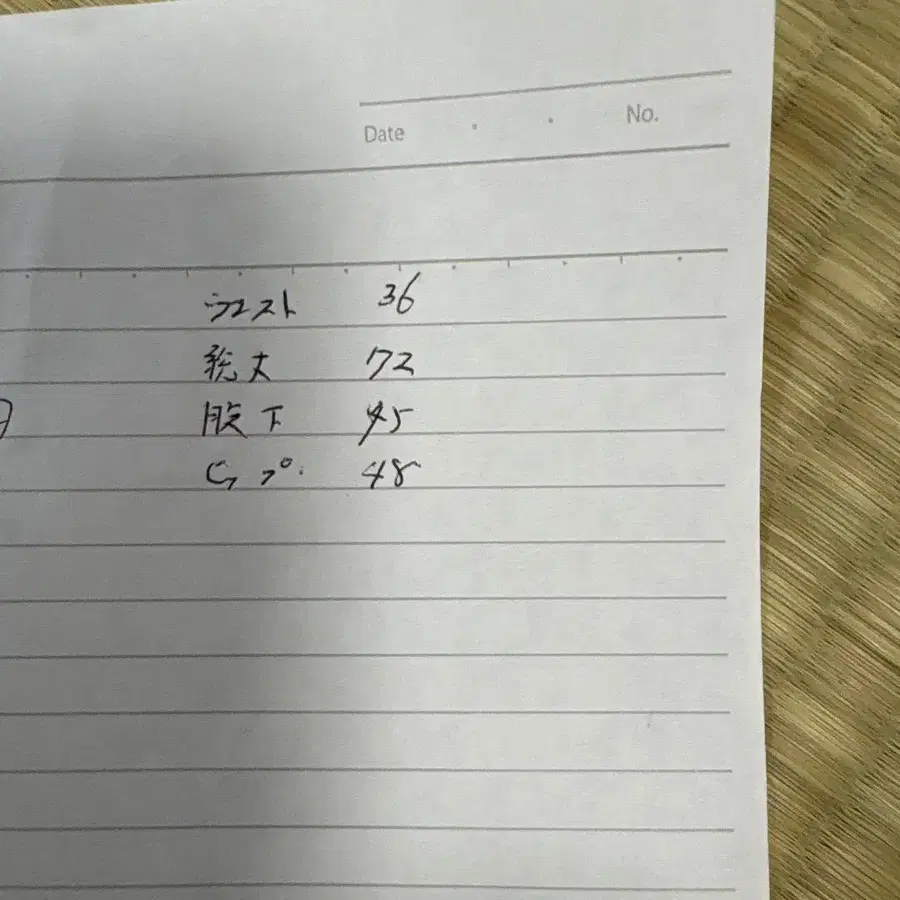 Date . . No.
ウエスト 36
総丈 72
股下 45
ヒップ 48